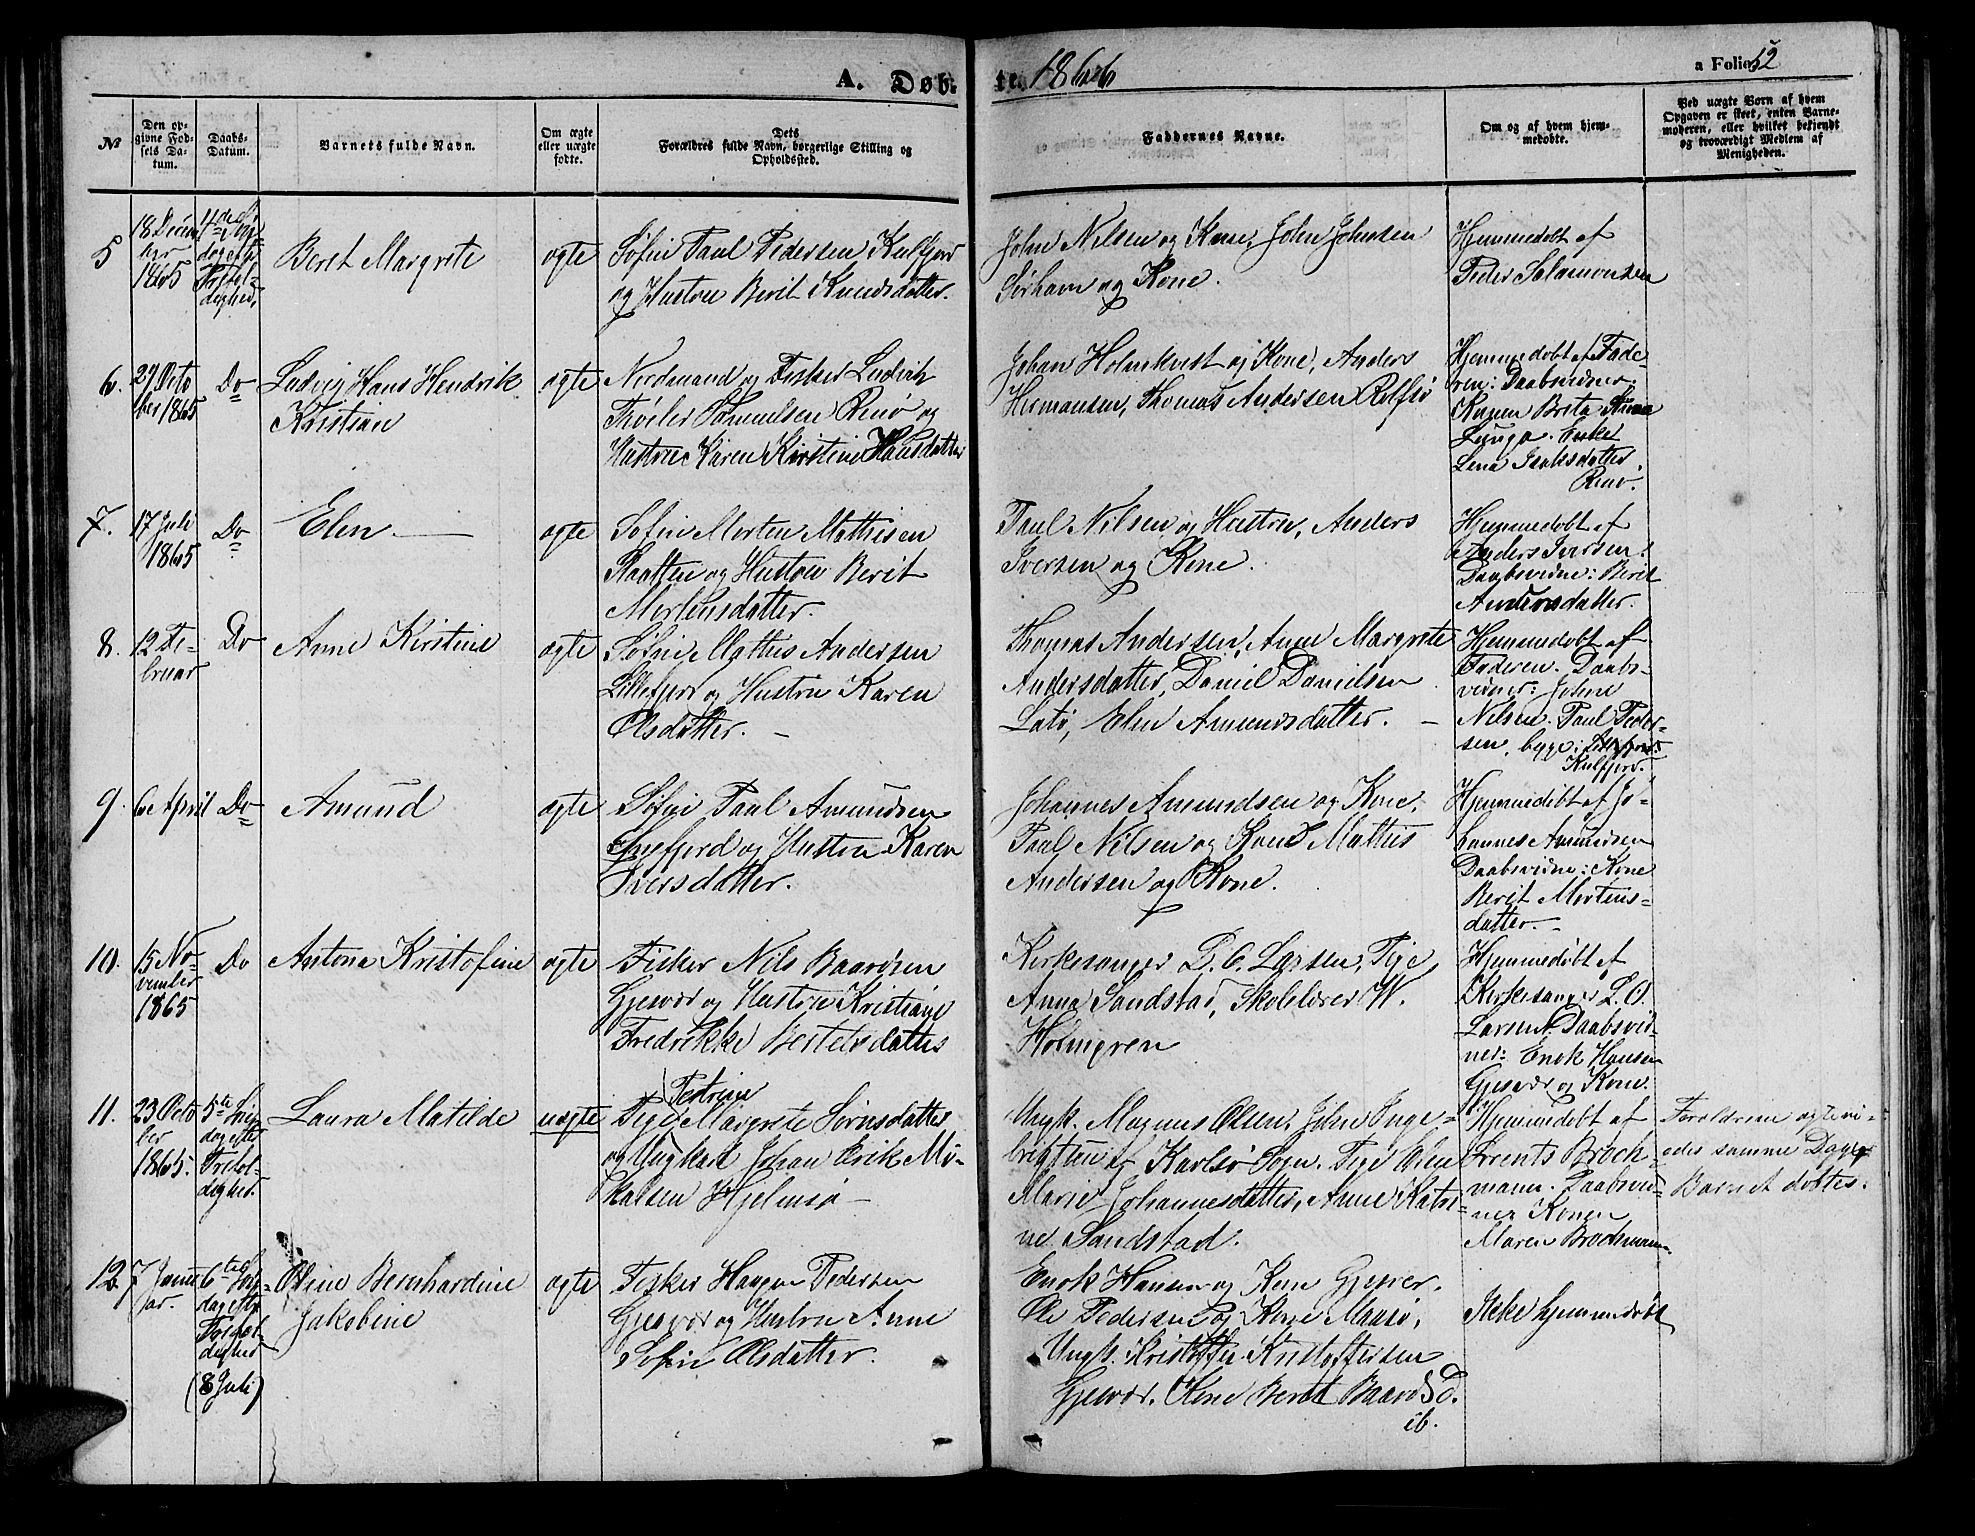 A. Døb-
te. 1866
a Folio 52
№
Den op-
givne Fød-
sels Da-
tum.
Daabs-
Datum.
Barnets fulde Navn.
Om ægte
eller uægte
fødte.
Dets
Forældres fulde Navn, borgerlige Stilling og
Opholdssted.
Faddernes Navne.
Om og af hvem hjem-
medøbt.
Ved uægte Born af hvem
Opgaven er skeet, enten Barne-
moderen, eller hvilket bekjendt
og troværdigt Medlem af
Menigheden.
5
18 Decem
ber
1865
4de Søn
dag efter
Trefol-
dighed,
Beret Margrete
ægte
Søfin Paul Pedersen Kulfjord
og Hustru Berit Knudsdatter.
John Nilsen og Kone, John Johnsen
Sørhavn og Kone.
Hjemmedøbt af
Peder Salamonsen
6.
29 Octo
ber 1865
Do
Ludvig Hans Hendrik
Kristian
ægte
Nordmand og Fisker Ludvik
Samuelsen Renø og
Hustrue Karen Kirstine Hansdatter
Johan Holmkvist og Kone, Anders
Hermansen, Thomas Andersen Rolfsø
Hjemmedøbt af Fade-
ren: Daabsvidner:
Brita
Enke
Lena Isaksdatter
Renø.
7.
17 Juli
1865
Do
Elen
ægte
Søfin Morten Mathisen
Slaatten og Hustru Berit
Mortensdatter.
Paul Nilsen og Hustru, Anders
Iversen og Kone.
Hjemmedøbt af
Anders Iversen.
Daabsvidne: Berit
Andersdatter.
8.
12 Fe-
bruar
Do
Anne Kirstine
ægte
Søfin Mattus Andersen
Lillefjord og Hustru Karen
Olsdatter.
Thomas Andersen, Anne Margrete
Andersdatter, Daniel Danielsen
Latø, Elen Amundsdatter.
Hjemmedøbt af
Faderen. Daabs-
vidner: John
Nilsen. Paul Peder-
sen, begge:
Kulfjord.
9.
6 April
Do
Amund
ægte
Søfin Paul Amundsen
Snefjord og Hustru Karen
Iversdatter.
Johannes Amundsen og Kone,
Paul Nilsen og Kone Mattis
Andersen og Kone.
Hjemmedøbt af Jo-
hannes Amundsen
Daabsvidne: Kone
Berit Mortens-
datter.
10.
15 No-
vember
1865
Do
Antona Kristofine
ægte
Fisker Nils Baardsen
Gjesvær og Hustru Kristiane
Fredrikke Bertelsdatter
Kirkesanger L. O. Larsen, Pige
Anna Sandstad, Skolelærer W.
Holmgren
Hjemmedøbt af
Kirkesanger L. O.
Larsen. Daabsvid-
ner: Enok Hansen
Gjesvær og Kone.
11.
23 Octo
ber
1865.
5te Søn-
dag efter
Trefol-
dighed.
Laura Matilde
uægte
Petrine
Pige Margrete Sørnsdatter
og Ungkarl Johan Erik Mi-
kalsen Hjelmsø
Ungk. Magnus Olsen, John Inge-
brigtsen af Karlsø Sogn. Pige Elen
Marie Johannesdatter, Anne Katri-
ne Sandstad.
Hjemmedøbt af
Lorents Brock-
mann. Daabsvid-
ner Konen
Maren Brockmann.
Forældrene ægtevi-
edes samme Dag
Barnet døbtes.
12.
7 Janu
ar.
6te Søn-
dag efter
Trefol-
dighed
(8 Juli)
Oline Bernhardine
Jakobine
ægte
Fisker Haagen Pedersen
Gjesvær og Hustru Anne
Sofie Olsdatter.
Enok Hansen og Kone Gjesvær.
Ole Pedersen og Kone Maasø,
Ungk. Kristoffer Kristoffersen
Gjesvær. Oline Berit Baards D.
ib.
Ikke hjemmedøbt